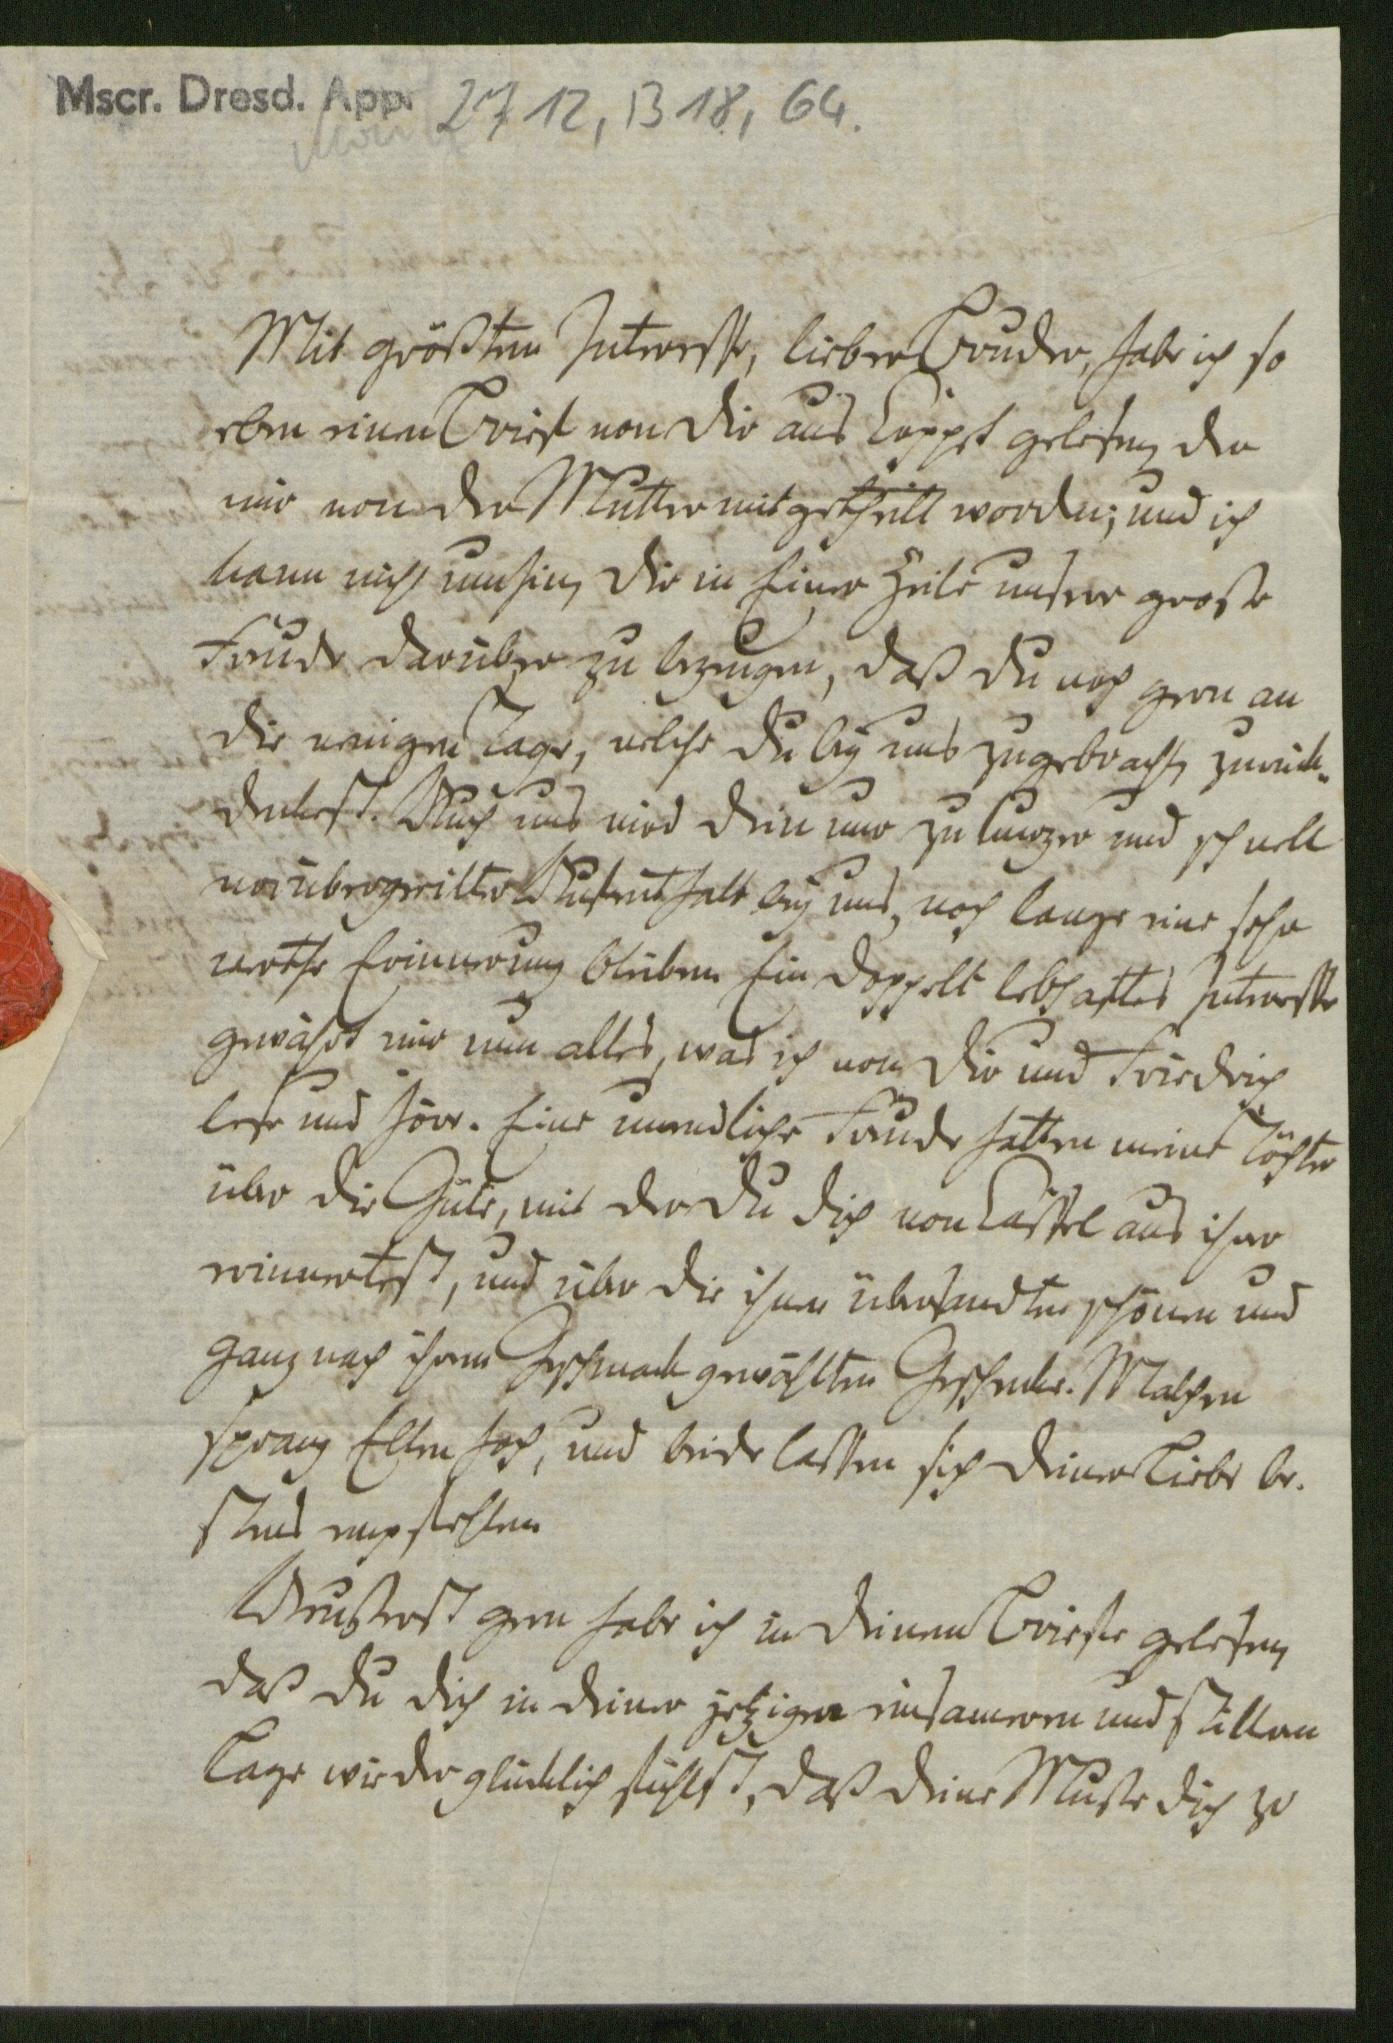 Mscr. Dresd. App. 2712, B 18, 64.
Mit größtem Interesse, lieber Bruder, habe ich so
eben einen Brief von dir aus Coppet gelesen, der
mir von der Mutter mitgetheilt worden; und ich
kann nicht umhin, dir in Einer Zeile unsere große
Freude darüber zu bezeugen, daß du noch gern an
die wenigen Tage, welche du bey uns zugebracht, zurück-
denkest. Auch uns wird dein nur zu kurzer und schnell
vorübergeeilter Aufenthalt bey uns, noch lange eine sehr
werthe Erinnerung bleiben. Ein doppelt lebhaftes Interesse
gewährt mir nun alles, was ich von dir und Friedrich
lese und höre. Eine unendliche Freude hatten meine Töchter
über die Güte, mit der du dich von Cassel aus ihrer
erinnertest, und über die ihnen übersandten schönen und
ganz nach ihrem Geschmack gewählten Geschenke. Malchen
sprang Ellen hoch, und beide lassen sich deiner Liebe be-
stens empfehlen.
Aeußerst gern habe ich in deinem Briefe gelesen,
daß du dich in deiner jetzigen einsameren und stilleren
Lage wieder glücklich fühlst, daß deine Muße dich zu